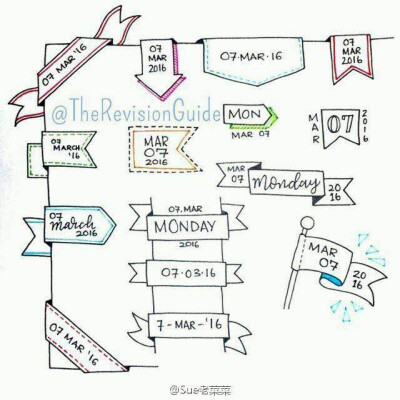 07 MAR '16
07
MAR
2016
07·MAR·16
07
MAR
2016
@TheRevisionGuide
07
MARCH
'16
MAR
07
2016
MON
MAR 07
MAR
07
2016
MAR
07
Monday
20
16
07
march
2016
07.MAR
MONDAY
2016
07·03·16
7-MAR-'16
MAR
07
20
16
07 MAR '16
@Sue老菜菜